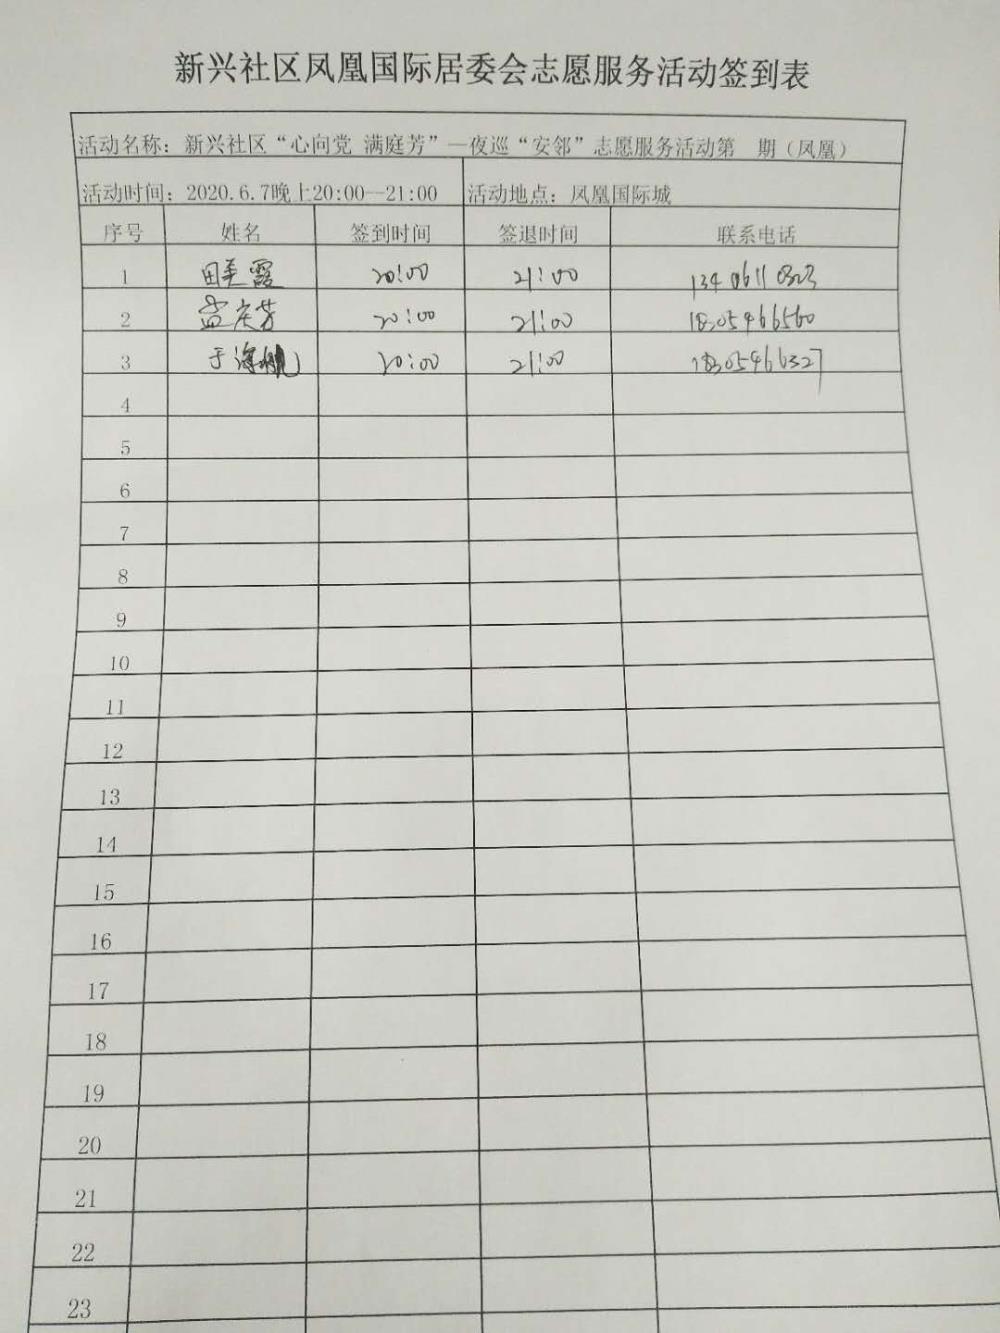 新兴社区凤凰国际居委会志愿服务活动签到表
活动名称：新兴社区“心向党 满庭芳”—夜巡“安邻”志愿服务活动第 期（凤凰）
活动时间：2020.6.7晚上20:00—21:00 活动地点：凤凰国际城
序号 姓名 签到时间 签退时间 联系电话
1 田美霞 20:00 21:00
2 孟庆芳 20:00 21:00 18305466560
3 于海 20:00 21:00 18305466327
4
5
6
7
8
9
10
11
12
13
14
15
16
17
18
19
20
21
22
23